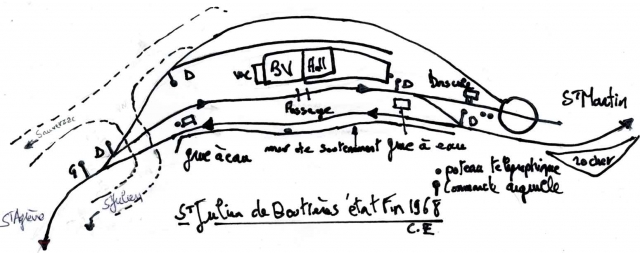 D
WC BV Hall
D
Bascule
St Martin
Passage
D
D
G
grue à eau
mur de soutenement
grue à eau
rocher
• poteau telegraphique
commande aiguille
St Agrève
St Julien de Boutières état Fin 1968
C.E